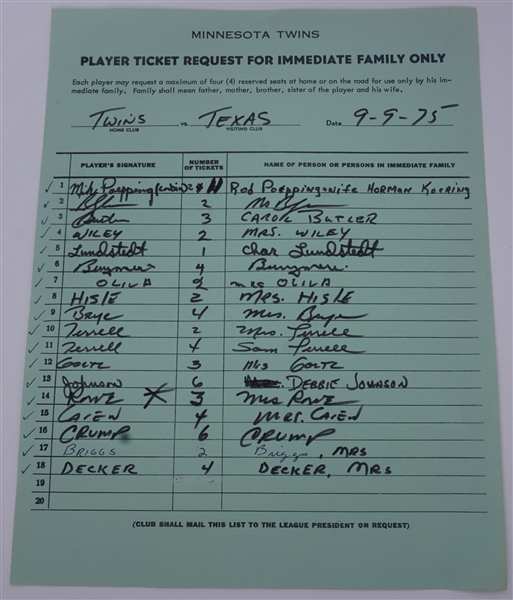 MINNESOTA TWINS
PLAYER TICKET REQUEST FOR IMMEDIATE FAMILY ONLY
Each player may request a maximum of four (4) reserved seats at home or on the road for use only by his im-
mediate family. Family shall mean father, mother, brother, sister of the player and his wife.
TWINS vs. TEXAS Date 9-9-75
HOME CLUB VISITING CLUB
PLAYER'S SIGNATURE NUMBER OF TICKETS NAME OF PERSON OR PERSONS IN IMMEDIATE FAMILY
1 Mike Poepping Rod Poepping-wife NORMAN KOERING
2 2
3 Butler 3 CAROL BUTLER
4 WILEY 2 MRS. WILEY
5 Lundstedt 1 Char Lundstedt
6 4
7 OLIVA 2 mrs OLIVA
8 HISLE 2 MRS. HISLE
9 Brye 4 Mrs. Brye
10 Terrell 2 Mrs. Terrell
11 Terrell 4 Sam Terrell
12 GOLTZ 3 Mrs GOLTZ
13 Johnson 6 DEBBIE JOHNSON
14 ROWE 3 Mrs ROWE
15 CAREW 4 MRS. CAREW
16 CRUMP 6 CRUMP
17 BRIGGS 2 Briggs, MRS
18 DECKER 4 DECKER, MRS
19
20
(CLUB SHALL MAIL THIS LIST TO THE LEAGUE PRESIDENT ON REQUEST)